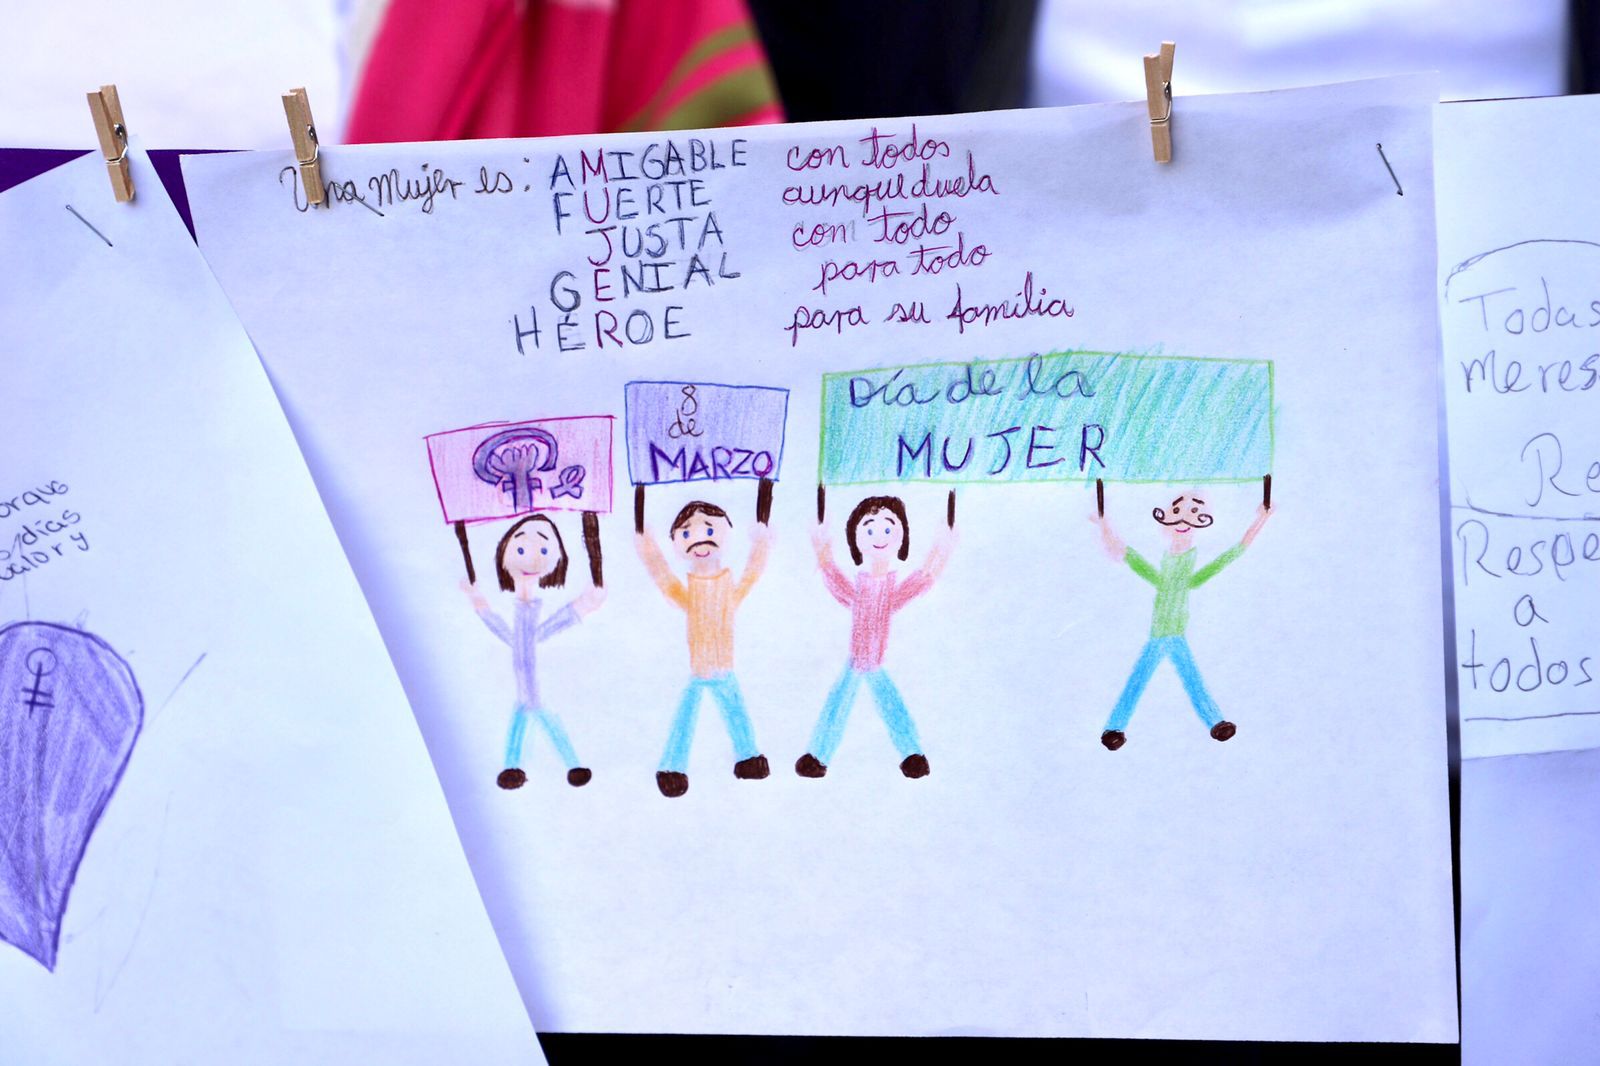 Una Mujer es: AMIGABLE con todos
FUERTE aunque duela
JUSTA con todo
GENIAL para todo
HÉROE para su família
8
de
MARZO
Día de la
MUJER
días
Todas
Re
a
todos